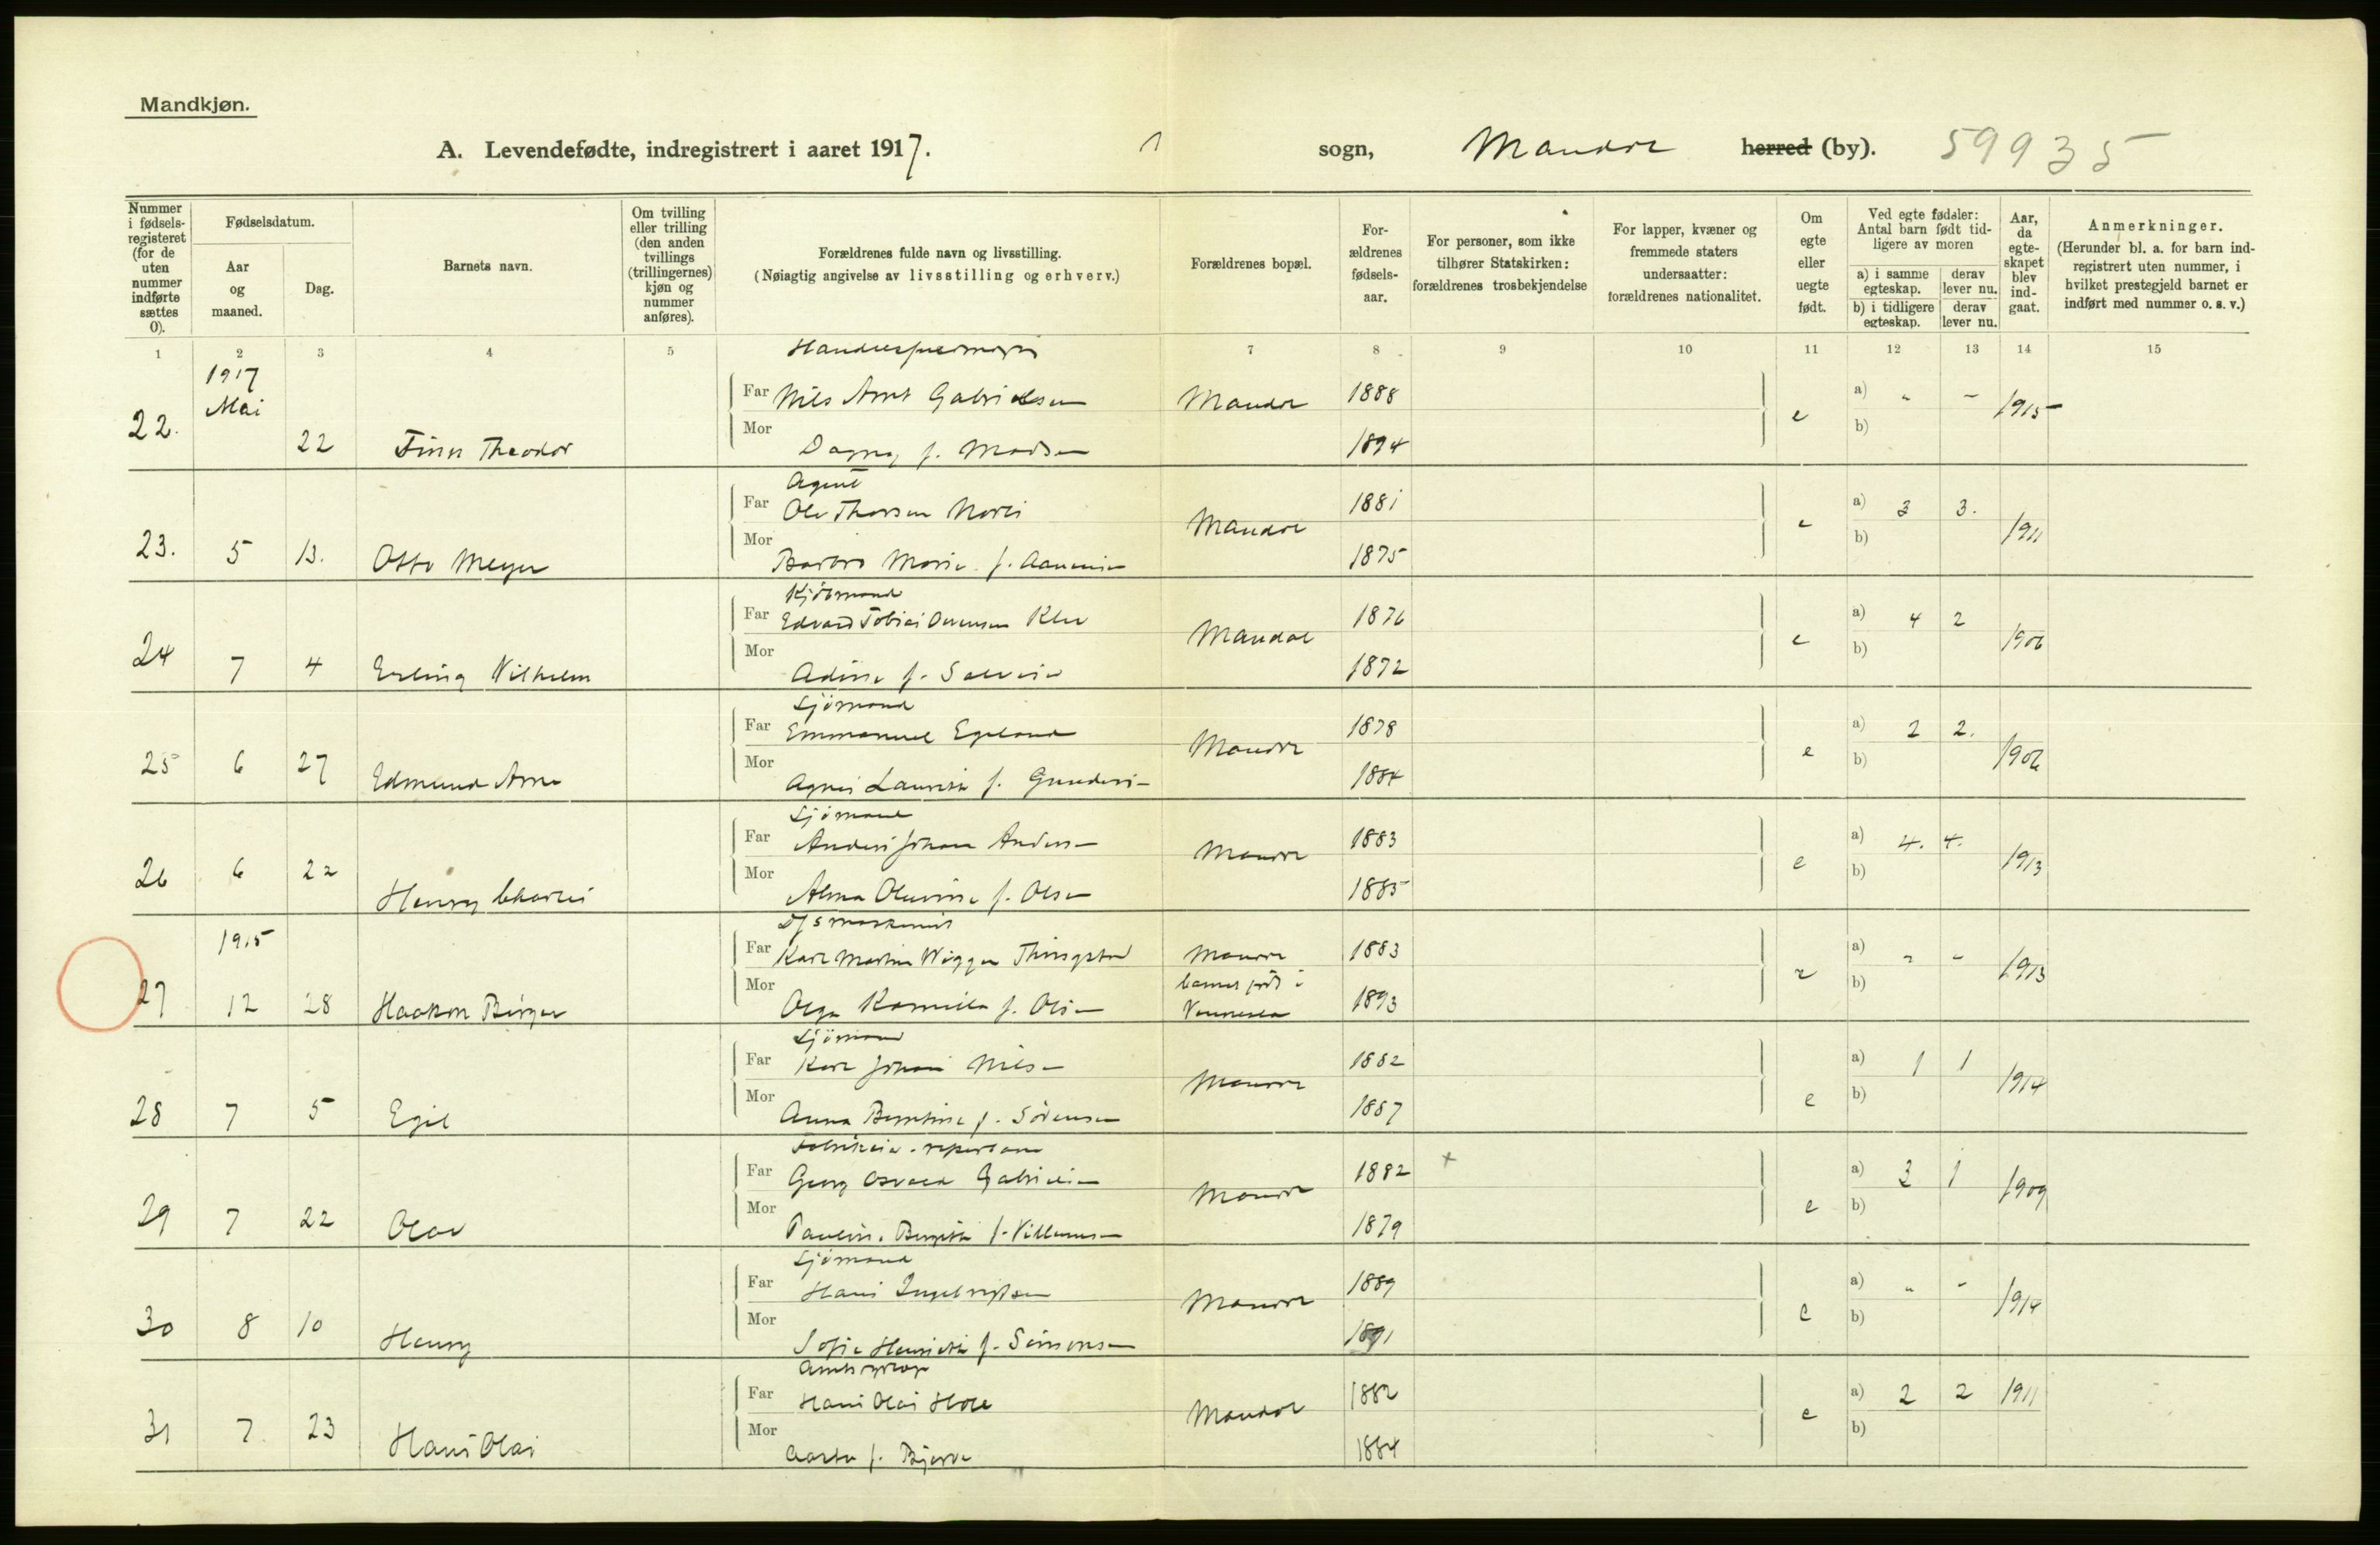 Mandkjøn.
A. Levendefødte, indregistrert i aaret 1917. sogn, Mandal herred (by). 59935
Nummer i fødsels-registeret (for de uten nummer indførte sættes 0).
Fødselsdatum.
Aar og maaned.
Dag.
Barnets navn.
Om tvilling eller trilling (den anden tvillings (trillingernes) kjøn og nummer anføres).
Forældrenes fulde navn og livsstilling.
(Nøiagtig angivelse av livsstilling og erhverv.)
Forældrenes bopæl.
For-ældrenes fødsels-aar.
For personer, som ikke tilhører Statskirken: forældrenes trosbekjendelse
For lapper, kvæner og fremmede staters undersaatter: forældrenes nationalitet.
Om egte eller uegte født.
Ved egte fødsler: Antal barn født tid-ligere av moren
a) i samme egteskap. derav lever nu.
b) i tidligere egteskap. derav lever nu.
Aar, da egte-skapet blev ind-gaat.
Anmerkninger.
(Herunder bl. a. for barn ind-registrert uten nummer, i hvilket prestegjeld barnet er indført med nummer o. s. v.)
1 2 3 4 5 7 8 9 10 11 12 13 14 15
1917
Mai
Far Nils Arnt Gabrielsen Mandal 1888 e a) " - 1915
22. 22 Finn Theodor Mor Dagny f. Madsen 1894 b)
Agent
Far Ole Thorsen Mandal 1881 e a) 3 3. 1911
23. 5 13. Otto Meyer Mor Barbro Marie f. 1875 b)
Far Edvard Tobias Mandal 1876 e a) 4 2 1906
24 7 4 Erling Vilhelm Mor Adine f. 1872 b)
Sjömand
Far Emmanuel Egeland Mandal 1878 e a) 2 2. 1906
25 6 27 Edmund Arne Mor Agnes f. 1884 b)
Sjömand
Far Anders Johan Andersen Mandal 1883 e a) 4. 4. 1913
26 6 22 Henry Charles Mor Alma f. Olsen 1885 b)
1915
D/S maskinist
Far Karl Martin Mandal 1883 a) " - 1913
27 12 28 Haakon Birger Mor Olga Kamilla f. Olsen barnet født i Vennesla 1893 b)
Sjömand
Far Karl Johan Nilsen Mandal 1882 e a) 1 1 1914
28 7 5 Egil Mor Anna f. Sörensen 1887 b)
Far Georg Osvald Gabrielsen Mandal 1882 + e a) 3 1 1909
29 7 22 Olav Mor f. 1879 b)
Sjömand
Far Hans Ingebrigtsen Mandal 1889 e a) " - 1914
30 8 10 Henry Mor Sofie f. Simonsen 1891 b)
Far Hans Olai Mandal 1882 e a) 2 2 1911
31 7 23 Hans Olai Mor f. 1884 b)